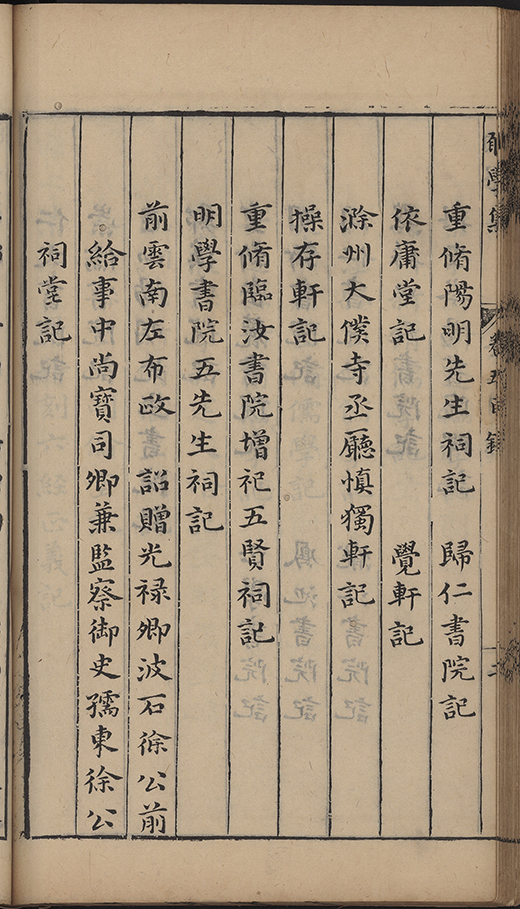 學集 卷五目錄 二
重脩陽明先生祠記 歸仁書院記
依庸堂記 覺軒記
滁州大僕寺丞廳慎獨軒記
操存軒記
重脩臨汝書院增祀五賢祠記
明學書院五先生祠記
前雲南左布政 詔贈光祿卿波石徐公前
給事中尚寶司卿兼監察御史孺東徐公
祠堂記